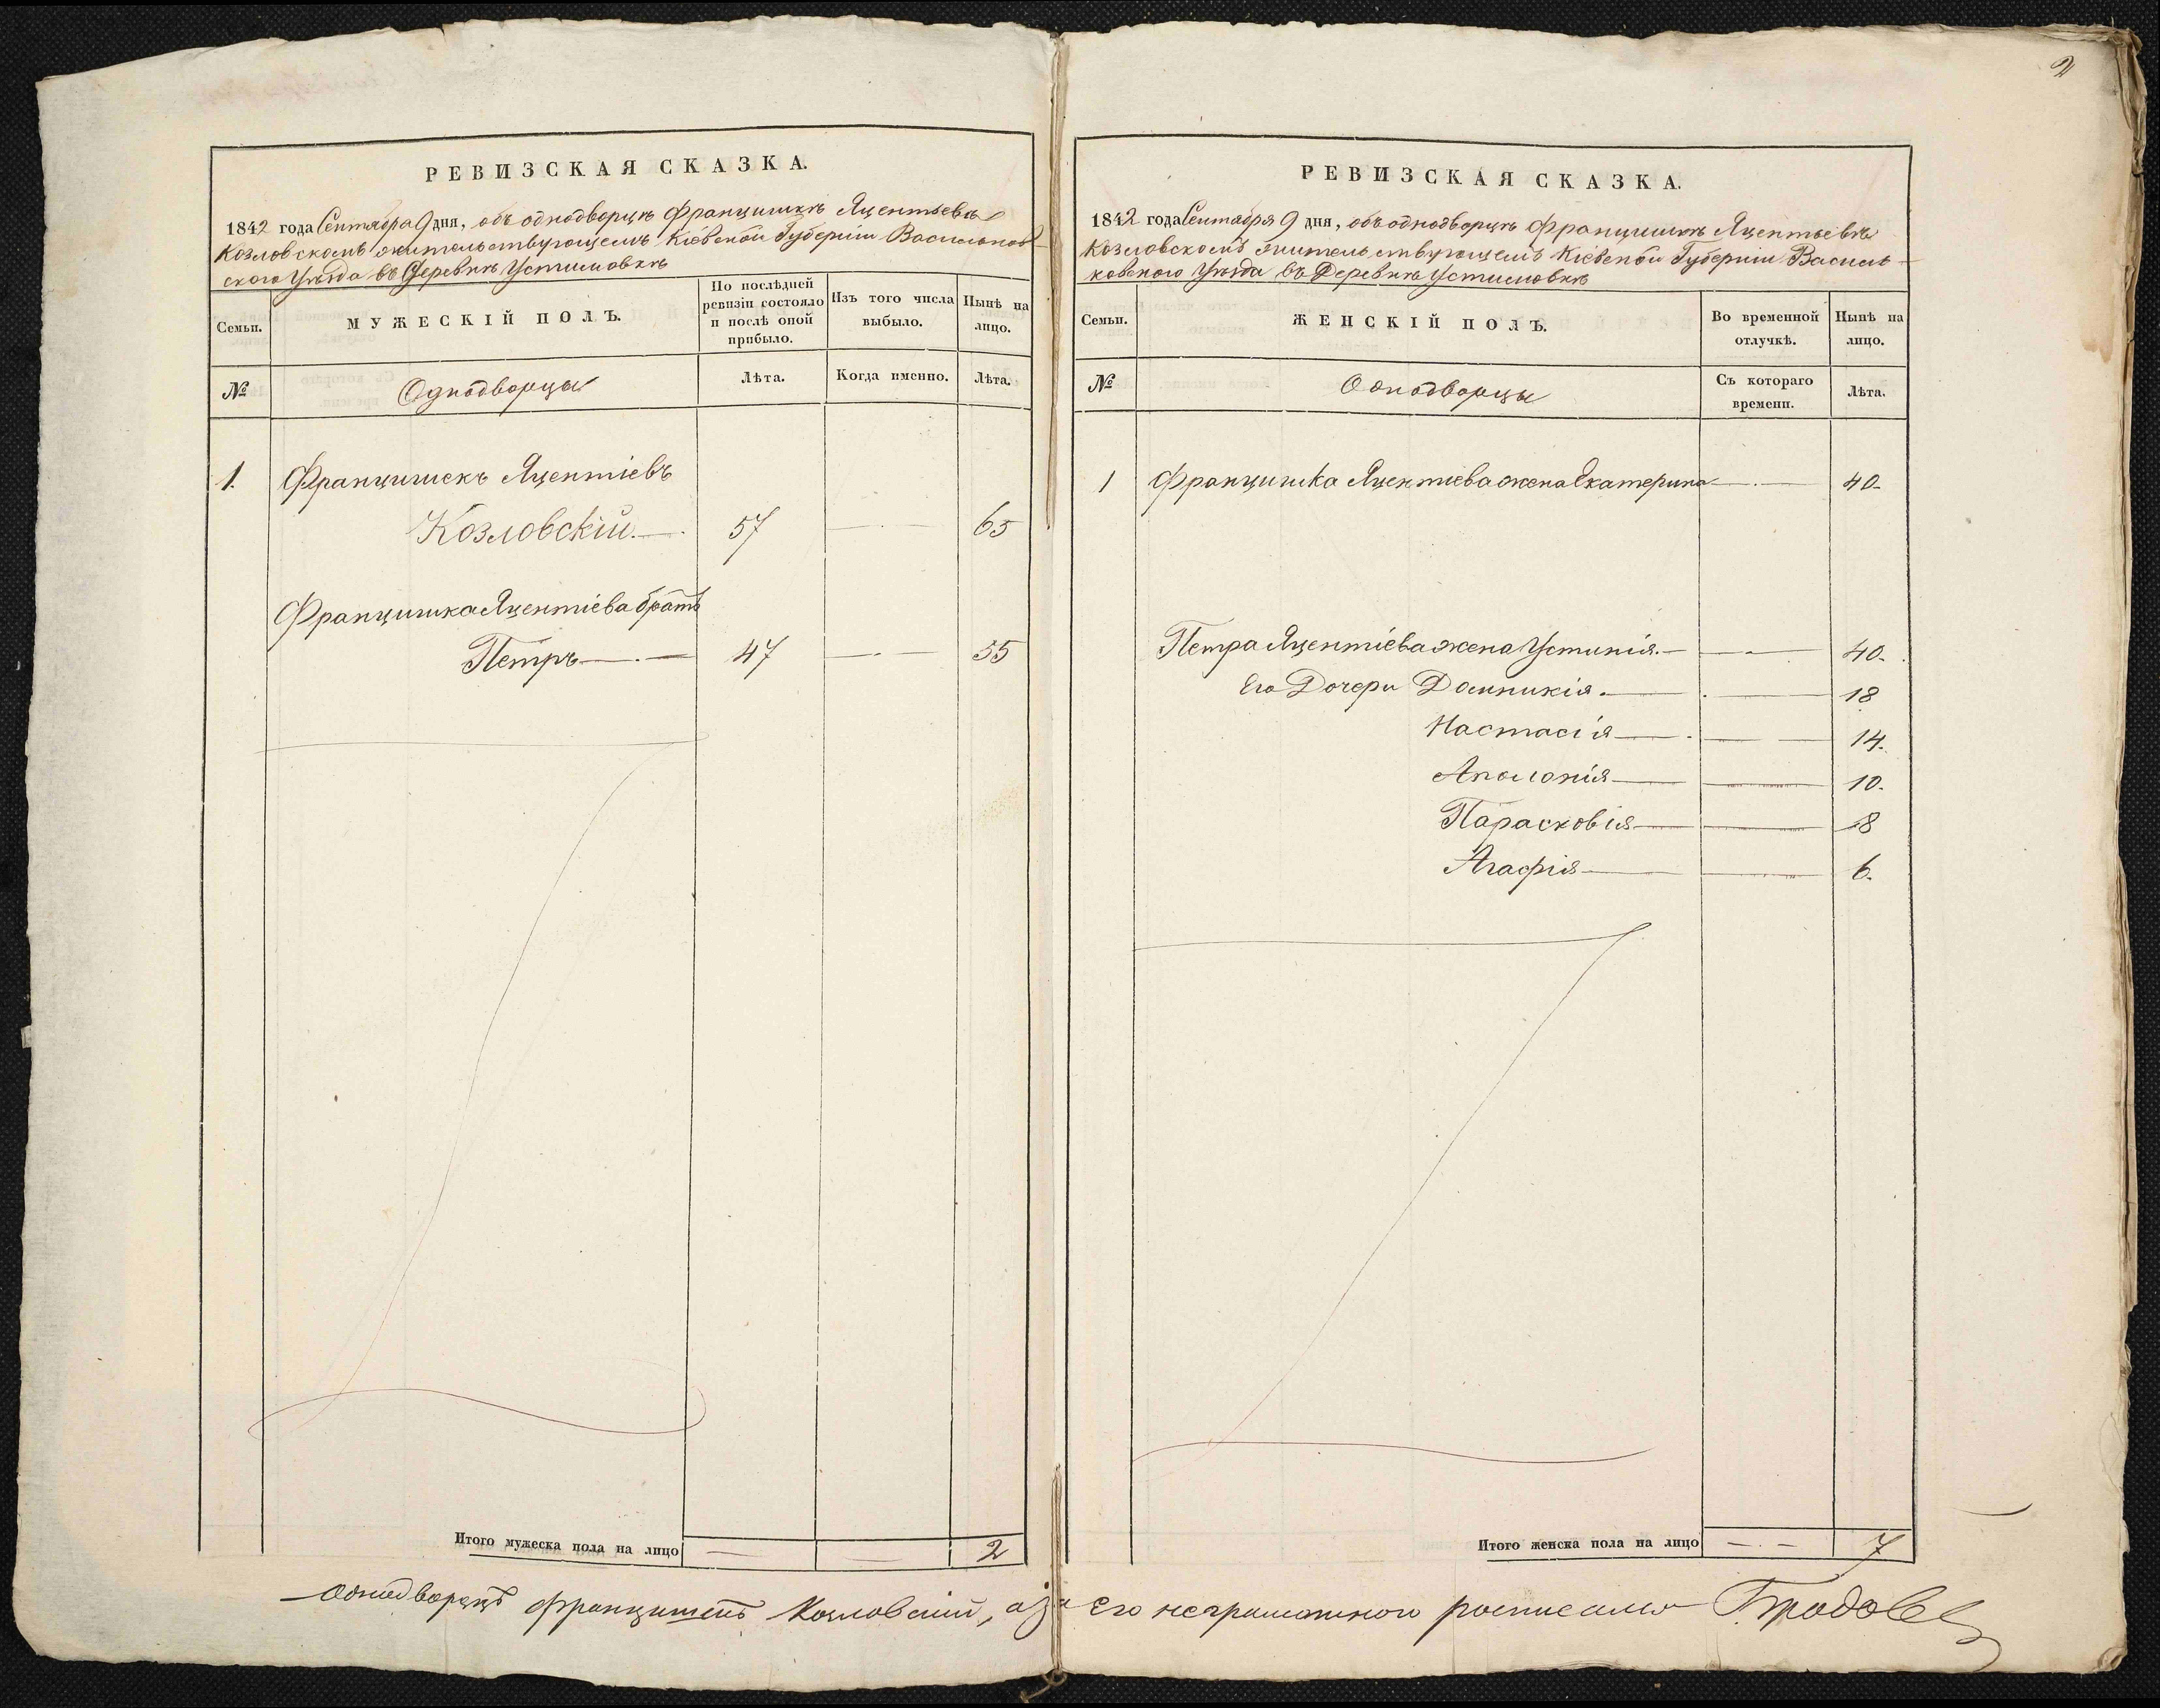 2
РЕВИЗСКАЯ СКАЗКА.
1842 года Сентября 9 дня, объ однодворцѣ Францишкѣ Яцентьевѣ
Козловскомъ жительствующемъ Кіевской Губерніи Васильков-
ского Уѣзда въ Деревнѣ Устимовкѣ
Семьи.
МУЖЕСКІЙ ПОЛЪ.
По послѣдней
ревизіи состояло
и послѣ оной
прибыло.
Изъ того числа
выбыло.
Нынѣ на
лицо.
№
Однодворцы
Лѣта.
Когда именно.
Лѣта.
1. Францишекъ Яцентіевъ
Козловскій. 57 65
Францишка Яцентіева братъ
Петръ 47 55
Итого мужеска пола на лицо 2
РЕВИЗСКАЯ СКАЗКА.
1842 года Сентября 9 дня, объ однодворцѣ Францишкѣ Яцентьевѣ
Козловскомъ жительствующемъ Кіевской Губерніи Василь-
ковского Уѣзда въ Деревнѣ Устимовкѣ
Семьи.
ЖЕНСКІЙ ПОЛЪ.
Во временной
отлучкѣ.
Нынѣ на
лицо.
№
Однодворцы
Съ котораго
времени.
Лѣта.
1 Францишка Яцентиева жена Екатерина 40.
Петра Яцентіева жена Устинія. 40.
Его Дочери Домникія. 18
Настасія 14.
Аполонія 10.
Парасковія 8
Агафія 6.
Итого женска пола на лицо 7
Однодворецъ Францишекъ Козловский, а за его неграмотного росписался